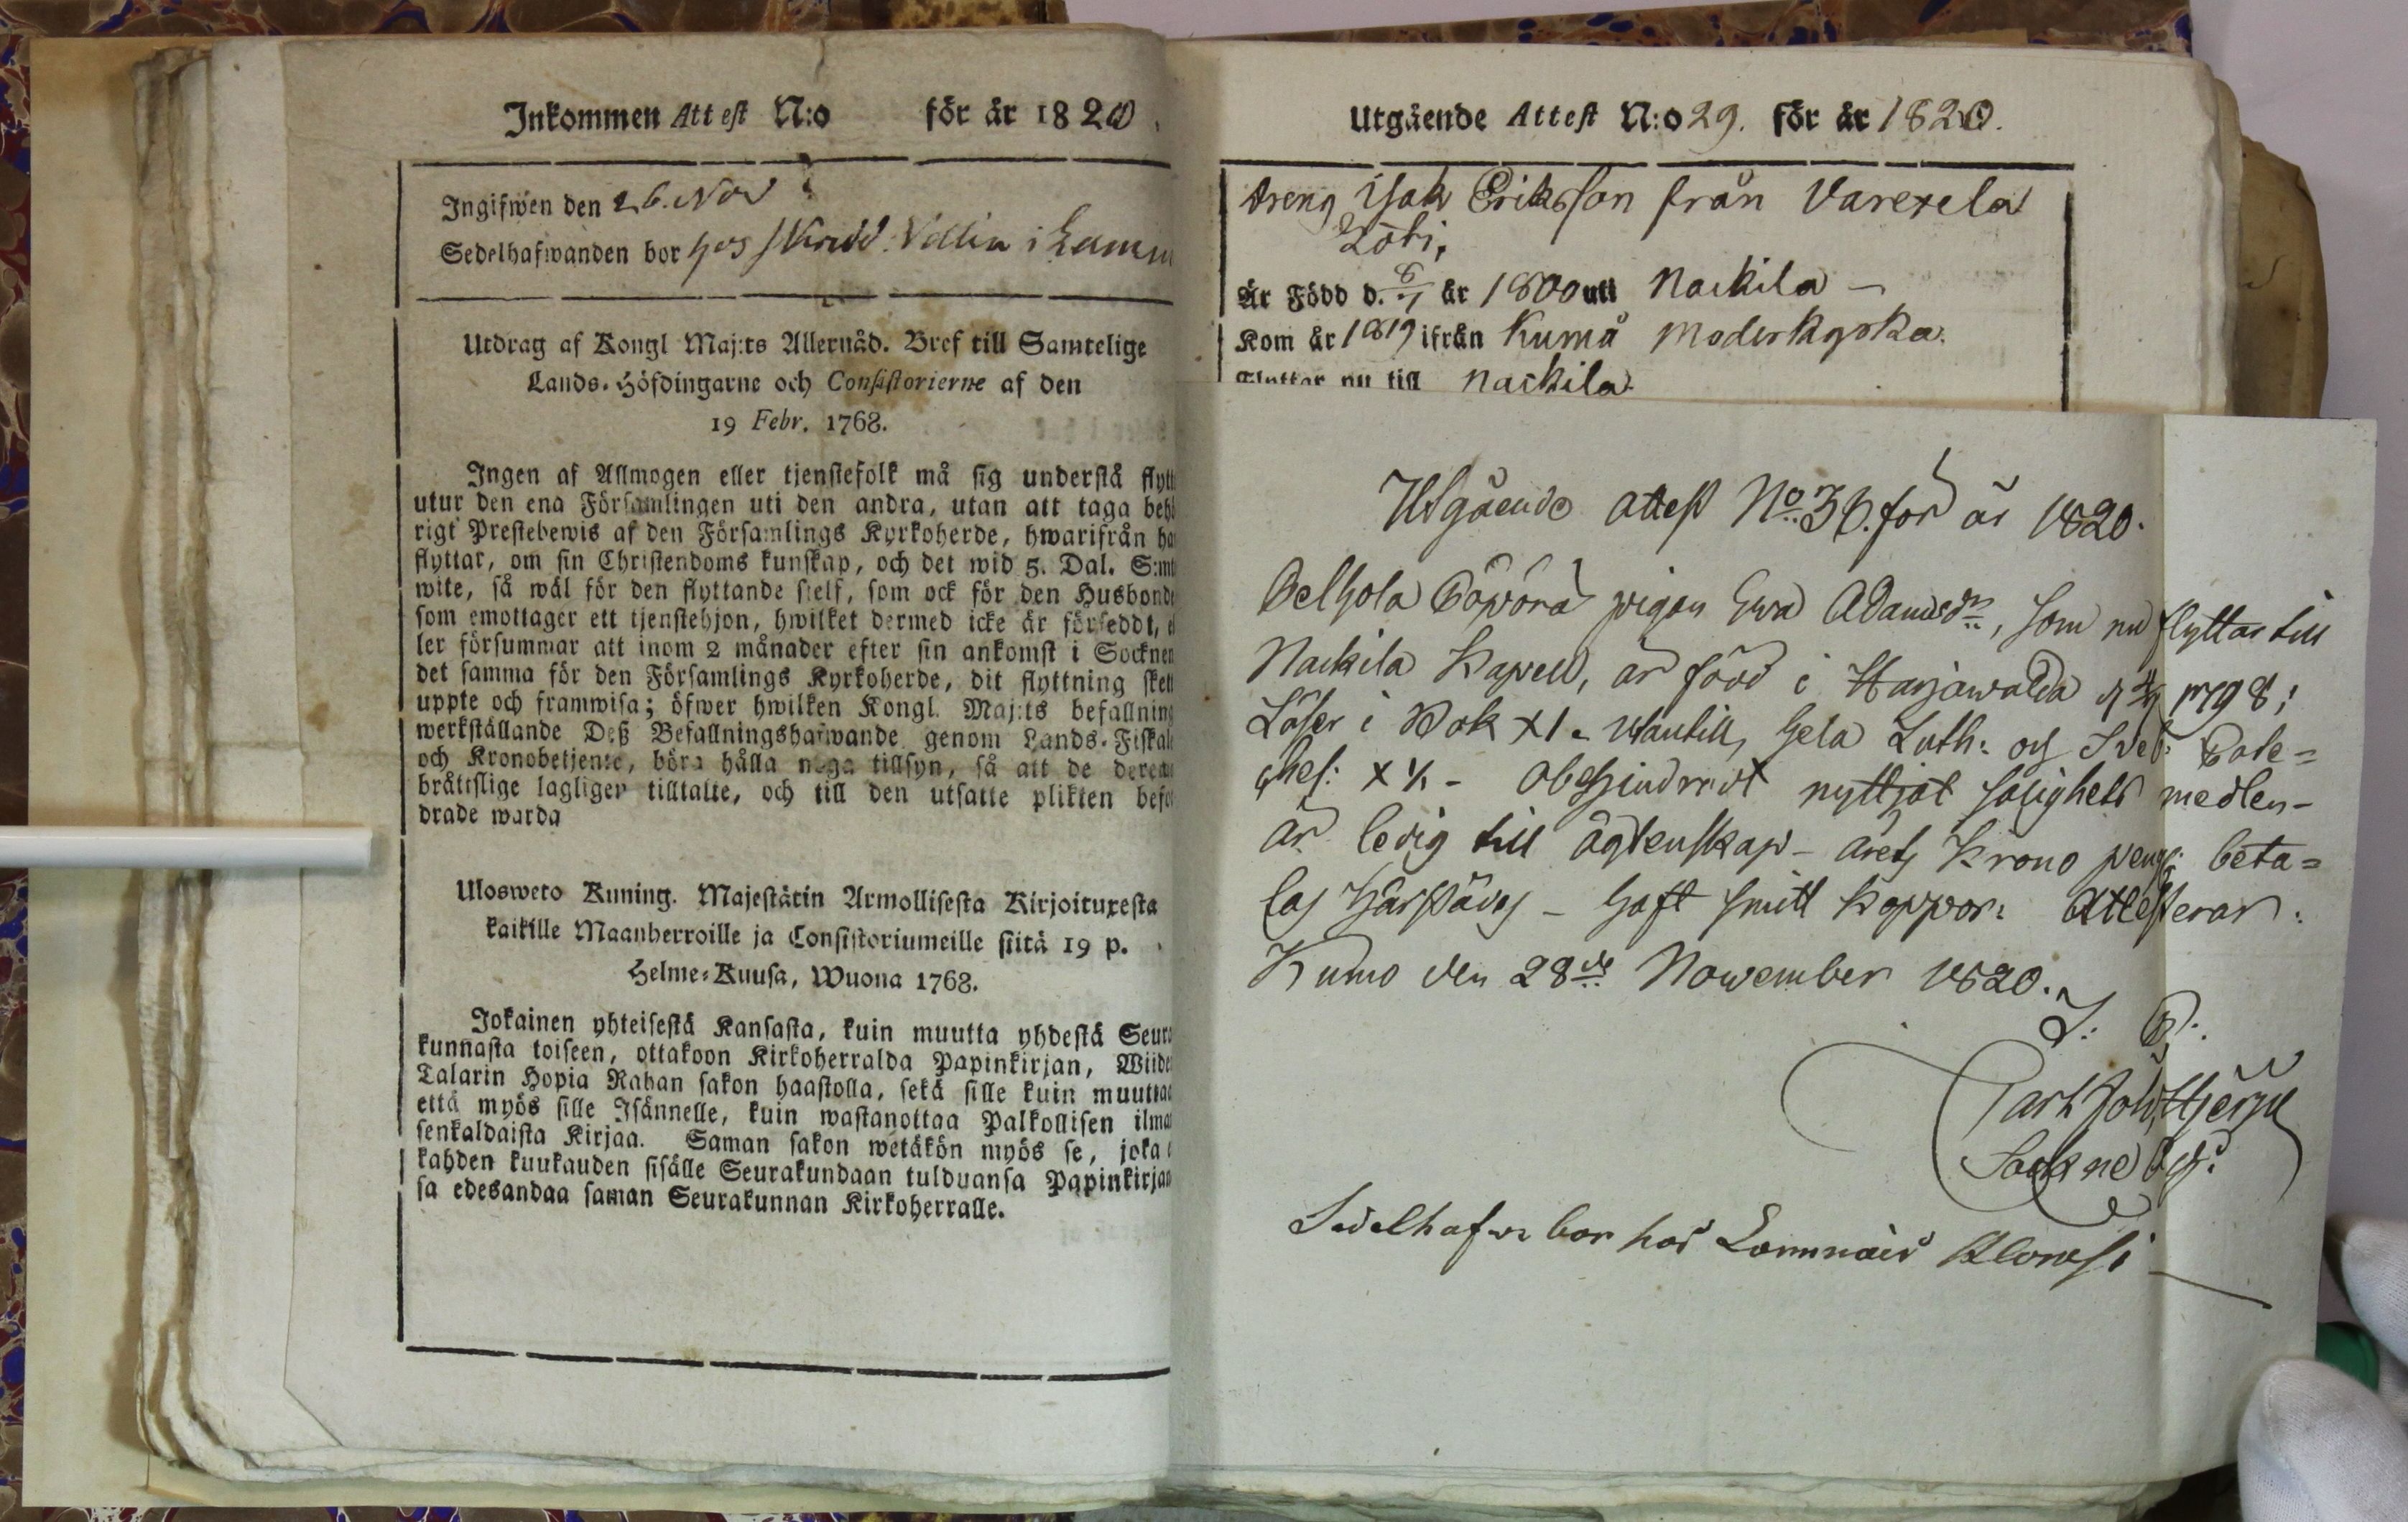 Inkommen Attest N:o för år 1820.
Ingifwen den 26. Nov
Sedelhafwanden bor hos i
Utdrag af Kongl Maj:ts Allernåd. Bref till Samtelige
Lands-Höfdingarne och Consistorierne af den
19 Febr. 1768.
Ingen af Allmogen eller tjenstefolk må sig understå flytt
utur den ena Församlingen uti den andra, utan att taga behö
rigt Prestebewis af den Församlings Kyrkoherde, hwarifrån ha
flyttar, om sin Christendoms kunskap, och det wid 5. Dal. S:mt
wite, så wäl för den flyttande sielf, som ock för den Husbonde
som emottager ett tjenstehjon, hwilket dermed icke är förseddt, el
ler försummar att inom 2 månader efter sin ankomst i Socknen
det samma för den Församlings Kyrkoherde, dit flyttning sket
uppte och framwisa; öfwer hwilken Kongl. Maj:ts befallning
werkställande Deß Befallningshafwande genom Lands-Fiskale
och Kronobetjente, böra hålla noga tillsyn, så att de derem
bråttslige lagligen tilltalte, och till den utsatte plikten befo
drade warda
Ulosweto Kuning. Majestätin Armollisesta Kirjoituxesta
kaikille Maanherroille ja Consistoriumeille siitä 19 p.
Helme-Kuusa, Wuona 1768.
Jokainen yhteisestä Kansasta, kuin muutta yhdestä Seura
kunnasta toiseen, ottakoon Kirkoherralda Papinkirjan, Wiide
Talarin Hopia Rahan sakon haastolla, sekä sille kuin muuttaa
että myös sille Isännelle, kuin wastanottaa Palkollisen ilma
senkaldaista Kirjaa. Saman sakon wetäkön myös se, joka e
kahden kuukauden sisälle Seurakundaan tulduansa Papinkirjaa
sa edesandaa saman Seurakunnan Kirkoherralle.
Utgående Attest N:o 29. för år 1820.
dreng Isak Eriksson från Varexela
Löti,
Är Född d. 6/7 år 1800 uti Nackila —
Kom år 1819 ifrån Kumå moderkyrka.
Flyttar nu till Nackila.
Utgående attest No. 36. för år 1820.
pigan Ewa Adamsdr, som nu flyttar till
Nackila Kapell, är född i Harjawalda d 1798;
Läser i Bok X1. utantill, hela Luth: og Sveb: Cate=
ches: X - obehindradt nyttjat salighets medlen -
är ledig till ägtenskap - årets Krono peng: beta=
las härstädes - haft smitt koppor: Attesterar:
Kumo den 28de Nowember 1820.
Carl
Sockne
Sedelhafw: bor hos Lammais